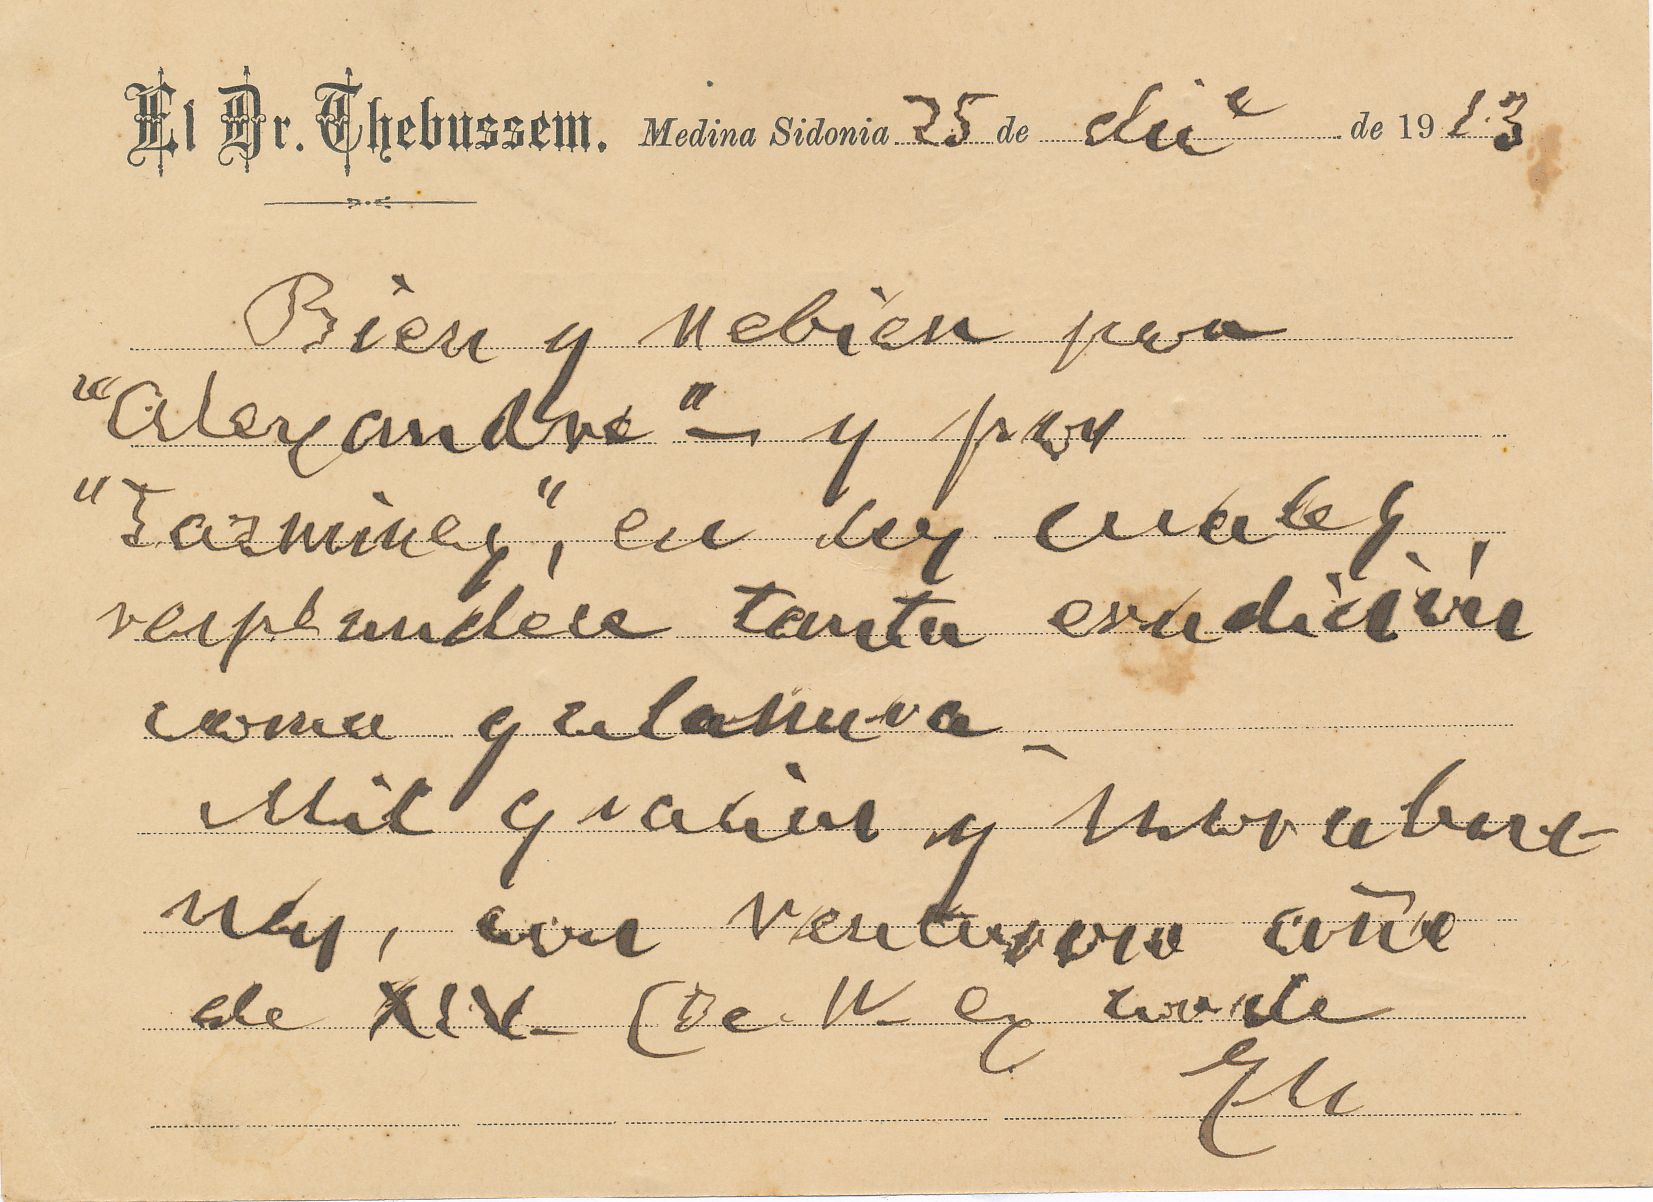 El Dr. Thebussem. Medina Sidonia 25 de dic.e de 1913
Bien y rebien por
"Alexandre" — y por
"Jazmines", en los cuales
resplandece tanta erudición
como galanura —
Mil gracias y norabue-
nas, con venturoso año
de XIV —